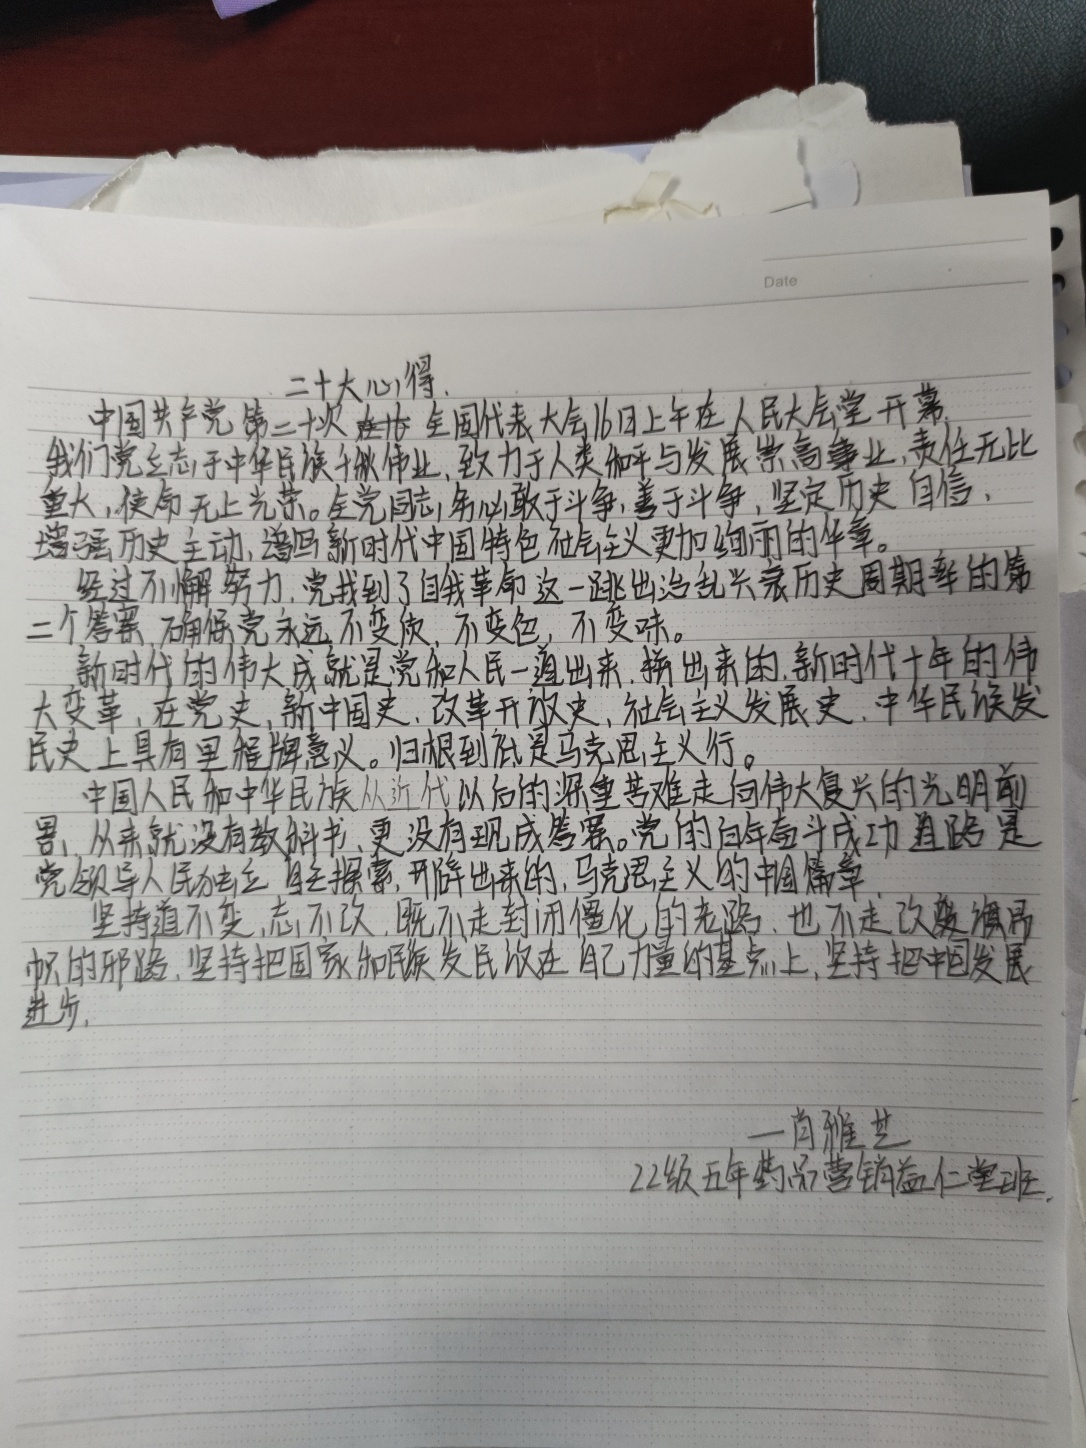 Date
二十大心得.
中国共产党第二十次全国代表大会16日上午在人民大会堂开幕,
我们党立志于中华民族千秋伟业,致力于人类和平与发展崇高事业,责任无比
重大,使命无上光荣。全党同志务必敢于斗争,善于斗争,坚定历史自信,
增强历史主动,谱写新时代中国特色社会主义更加绚丽的华章。
经过不懈努力,党找到了自我革命这一跳出治乱兴衰历史周期率的第
二个答案,确保党永远不变质,不变色,不变味。
新时代的伟大成就是党和人民一道出来,拼出来的,新时代十年的伟
大变革,在党史,新中国史,改革开放史,社会主义发展史,中华民族发
民史上具有里程牌意义。归根到底是马克思主义行。
中国人民和中华民族从近代以后的深重苦难走向伟大复兴的光明前
景,从来就没有教科书,更没有现成答案。党的百年奋斗成功道路是
党领导人民独立自主探索,开辟出来的,马克思主义的中国篇章,
坚持道不变,志不改,既不走封闭僵化的老路,也不走改变旗易
帜的邪路,坚持把国家和民族发民放在自己力量的基点上,坚持把中国发展
进步,
—肖雅芝
22级五年药品营销益仁堂班.